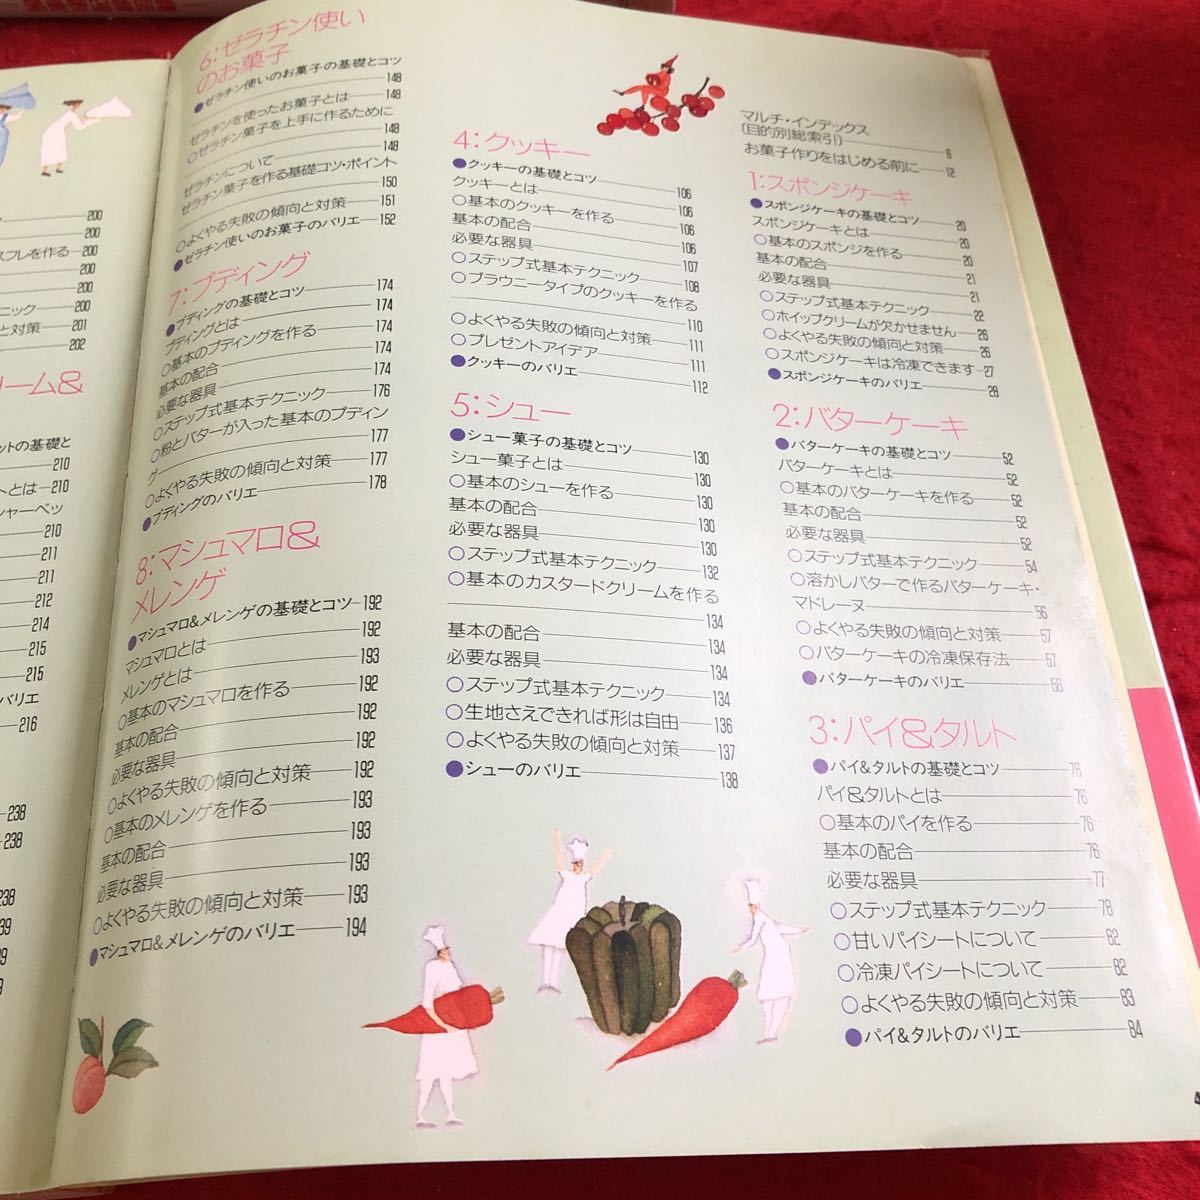 マルチ・インデックス
(目的別総索引)――6
お菓子作りをはじめる前に――12
1:スポンジケーキ
●スポンジケーキの基礎とコツ――20
スポンジケーキとは――20
○基本のスポンジを作る――20
基本の配合――21
必要な器具――21
○ステップ式基本テクニック――22
○ホイップクリームが欠かせません――26
○よくやる失敗の傾向と対策――26
○スポンジケーキは冷凍できます――27
●スポンジケーキのバリエ――28
2:バターケーキ
●バターケーキの基礎とコツ――52
バターケーキとは――52
○基本のバターケーキを作る――52
基本の配合――52
必要な器具――52
○ステップ式基本テクニック――54
○溶かしバターで作るバターケーキ・
マドレーヌ――56
○よくやる失敗の傾向と対策――57
○バターケーキの冷凍保存法――57
●バターケーキのバリエ――58
3:パイ&タルト
●パイ&タルトの基礎とコツ――76
パイ&タルトとは――76
○基本のパイを作る――76
基本の配合――76
必要な器具――77
○ステップ式基本テクニック――78
○甘いパイシートについて――82
○冷凍パイシートについて――82
○よくやる失敗の傾向と対策――83
●パイ&タルトのバリエ――84
4:クッキー
●クッキーの基礎とコツ――106
クッキーとは――106
○基本のクッキーを作る――106
基本の配合――106
必要な器具――107
○ステップ式基本テクニック――108
○ブラウニータイプのクッキーを作る
――110
○よくやる失敗の傾向と対策――111
○プレゼントアイデア――111
●クッキーのバリエ――112
5:シュー
●シュー菓子の基礎とコツ――130
シュー菓子とは――130
○基本のシューを作る――130
基本の配合――130
必要な器具――130
○ステップ式基本テクニック――132
○基本のカスタードクリームを作る
――134
基本の配合――134
必要な器具――134
○ステップ式基本テクニック――134
○生地さえできれば形は自由――136
○よくやる失敗の傾向と対策――137
●シューのバリエ――138
6:ゼラチン使い
のお菓子
●ゼラチン使いのお菓子の基礎とコツ
――148
ゼラチンを使ったお菓子とは――148
○ゼラチン菓子を上手に作るために
――148
ゼラチンについて――148
ゼラチン菓子を作る基礎コツ・ポイント
――150
○よくやる失敗の傾向と対策――151
●ゼラチン使いのお菓子のバリエ――152
7:プディング
●プディングの基礎とコツ――174
プディングとは――174
○基本のプディングを作る――174
基本の配合――174
必要な器具――174
○ステップ式基本テクニック――176
○粉とバターが入った基本のプディン
グ――177
○よくやる失敗の傾向と対策――177
●プディングのバリエ――178
8:マシュマロ&
メレンゲ
●マシュマロ&メレンゲの基礎とコツ―192
マシュマロとは――192
メレンゲとは――193
○基本のマシュマロを作る――192
基本の配合――192
必要な器具――192
○よくやる失敗の傾向と対策――192
○基本のメレンゲを作る――193
基本の配合――193
必要な器具――193
○よくやる失敗の傾向と対策――193
●マシュマロ&メレンゲのバリエ――194
200
200
スフレを作る――200
200
ニック――200
と対策――201
202
リーム&
ットの基礎と
210
トとは――210
シャーベッ
210
211
211
212
214
215
215
バリエ
216
238
238